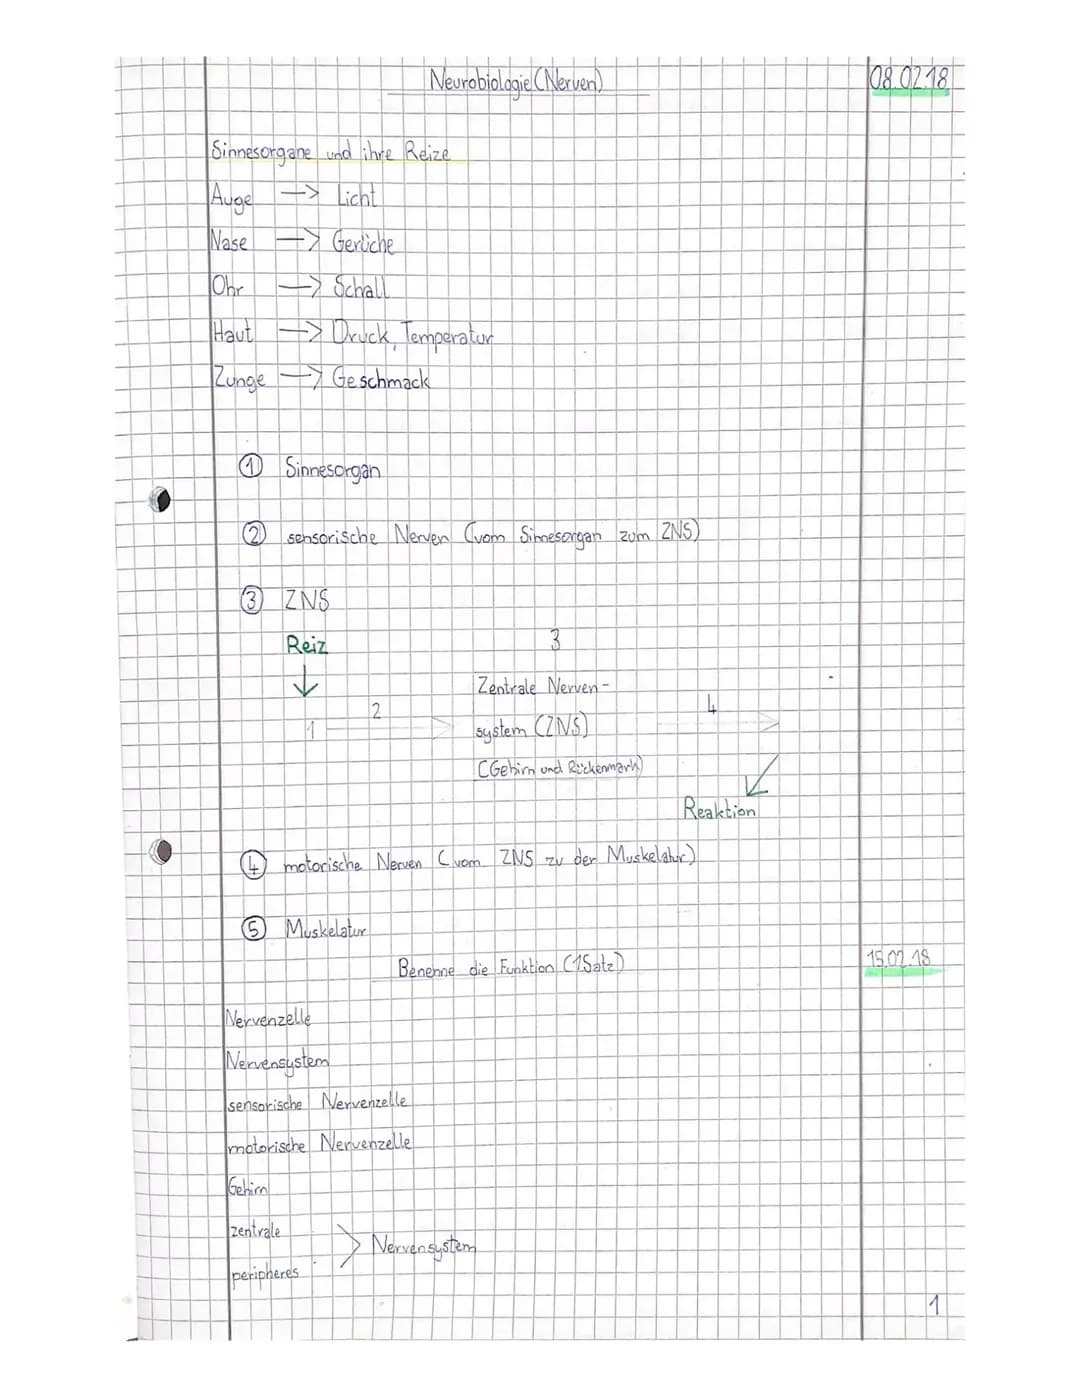 Neurobiologie (Nerven)
08.02.18
Sinnesorgane und ihre Reize
Auge —> Licht
Nase —> Gerüche
Ohr —> Schall
Haut —> Druck, Temperatur
Zunge —> Geschmack
① Sinnesorgan
② sensorische Nerven (vom Sinnesorgan zum ZNS)
③ ZNS
Reiz
3
Zentrale Nerven-
2
4
1
system (ZNS)
(Gehirn und Rückenmark)
Reaktion
④ motorische Nerven (vom ZNS zu der Muskelatur)
⑤ Muskelatur
Benenne die Funktion (1Satz)
15.02.18
Nervenzelle
Nervensystem
sensorische Nervenzelle
motorische Nervenzelle
Gehirn
zentrale
Nervensystem
peripheres
1